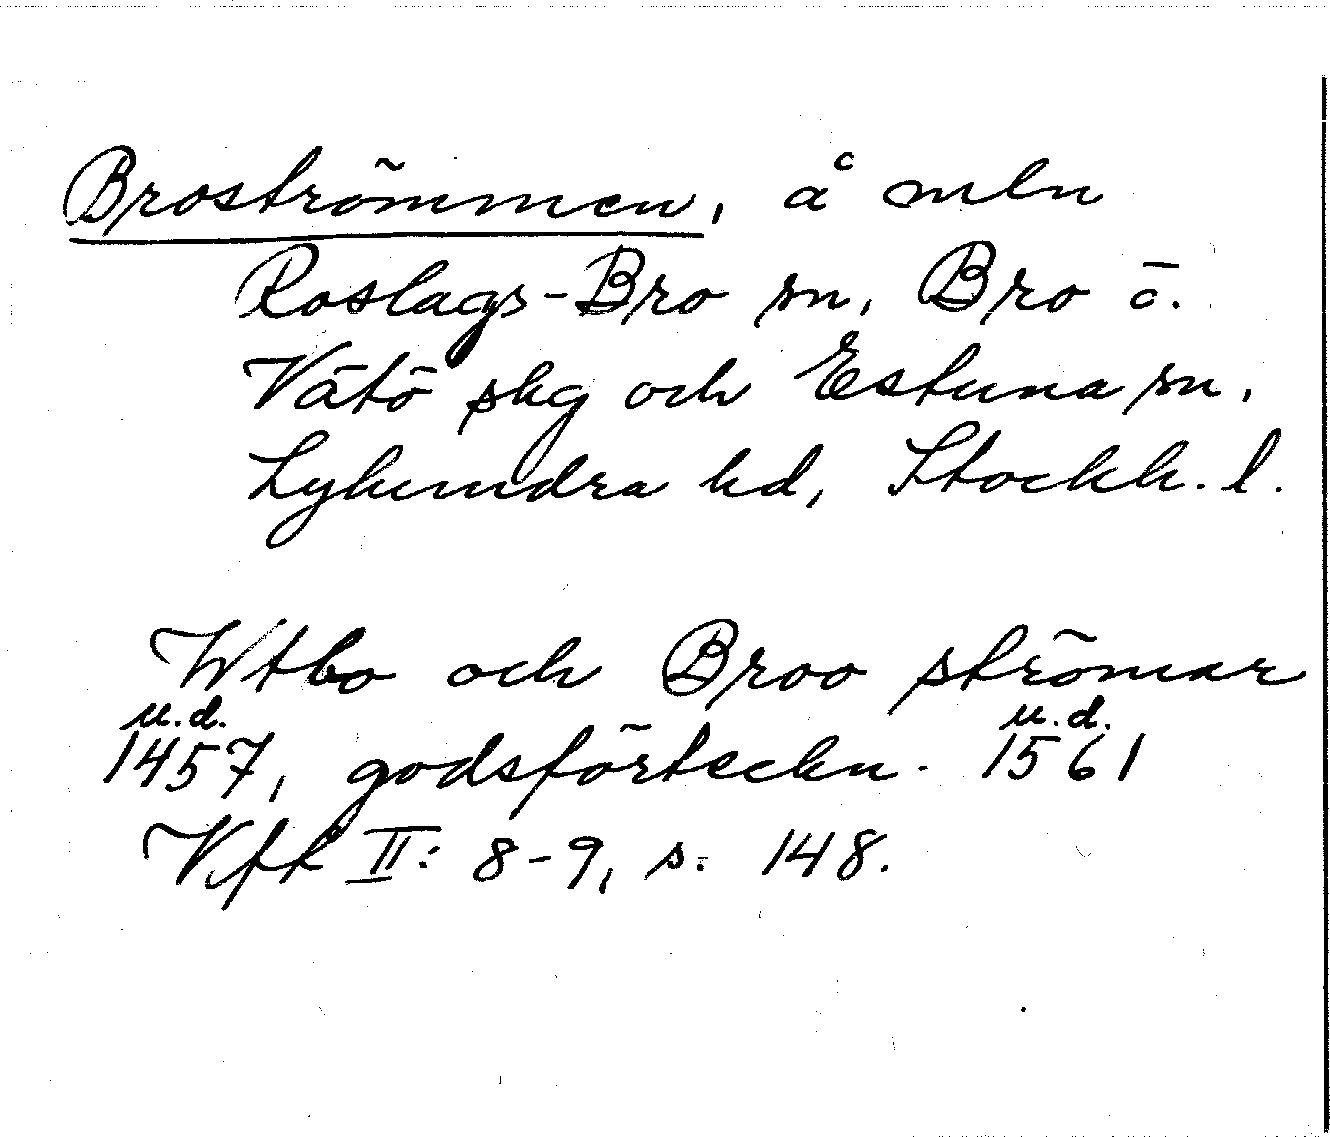 Broströmmen, å mln
Roslags-Bro sn, Bro o.
Vätö skg och Estuna sn,
Lyhundra hd, Stockh. l.
Wtbo och Broo strömar
u.d. u.d.
1457, godsförteckn. 1561
Vfk II: 8-9, s. 148.